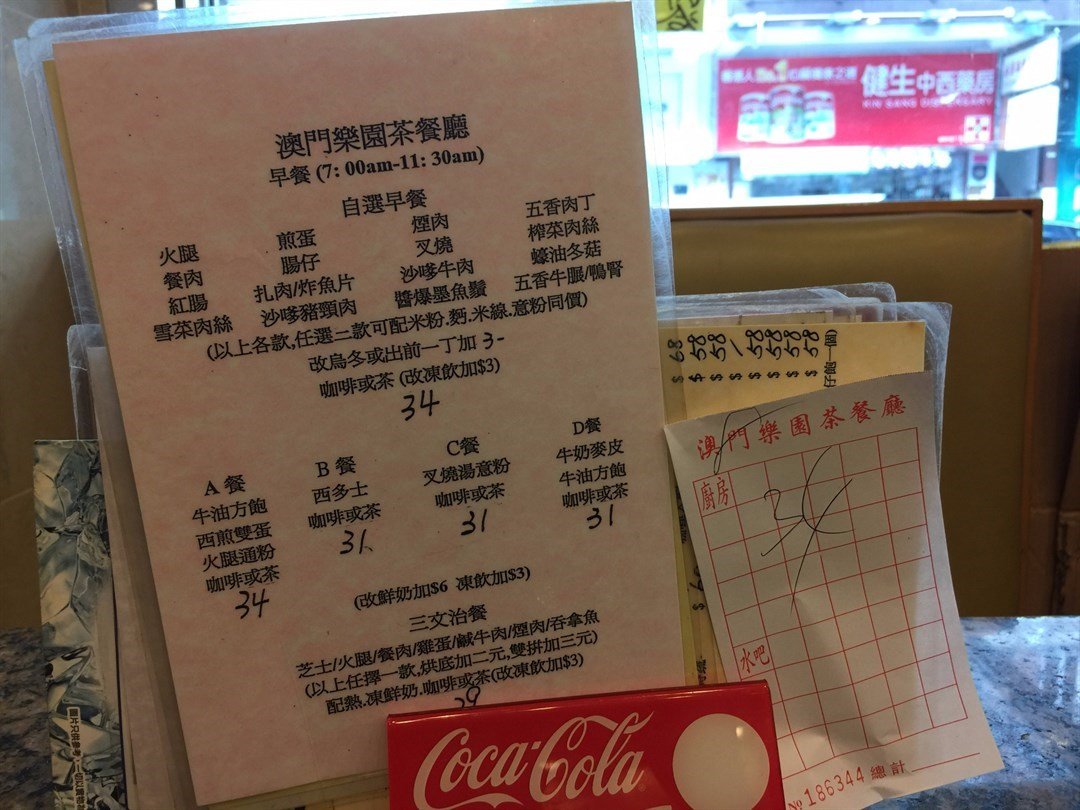 澳門樂園茶餐廳
早餐 (7: 00am-11: 30am)
自選早餐
火腿 煎蛋 煙肉 五香肉丁
餐肉 腸仔 叉燒 榨菜肉絲
紅腸 扎肉/炸魚片 沙嗲牛肉 蠔油冬菇
雪菜肉絲 沙嗲豬頸肉 醬爆墨魚鬚 五香牛脲/鴨腎
(以上各款,任選二款可配米粉.麪.米線.意粉同價)
改烏冬或出前一丁加 3-
咖啡或茶 (改凍飲加$3)
34
A 餐
牛油方飽
西煎雙蛋
火腿通粉
咖啡或茶
34
B 餐
西多士
咖啡或茶
31
C餐
叉燒湯意粉
咖啡或茶
31
D餐
牛奶麥皮
牛油方飽
咖啡或茶
31
(改鮮奶加$6 凍飲加$3)
三文治餐
芝士/火腿/餐肉/雞蛋/鹹牛肉/煙肉/吞拿魚
(以上任擇一款,烘底加二元,雙拚加三元)
配熱.凍鮮奶.咖啡或茶(改凍飲加$3)
29
Coca-Cola
健生中西藥房
KIN SANG DISPENSARY
$ 68
$ 58
$ 58
$ /
$ 58
$ 58
$ 58
$ 58
澳門樂園茶餐廳
廚房
水吧
№ 186344 總計